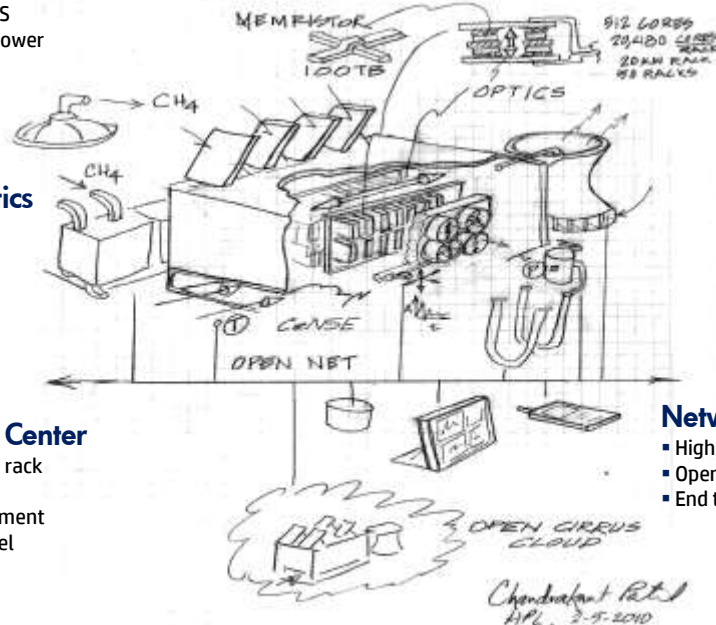 S
ower
MEMRISTOR
100TB
512 CORES
20,480 CORES
RACK
20KW RACK
50 RACKS
OPTICS
CH4
CH4
tics
CeNSE
OPEN NET
Center
rack
ment
el
Netw
▪ High
▪ Open
▪ End t
OPEN CIRRUS
CLOUD
Chandrakant Patel
HPL, 2-5-2010